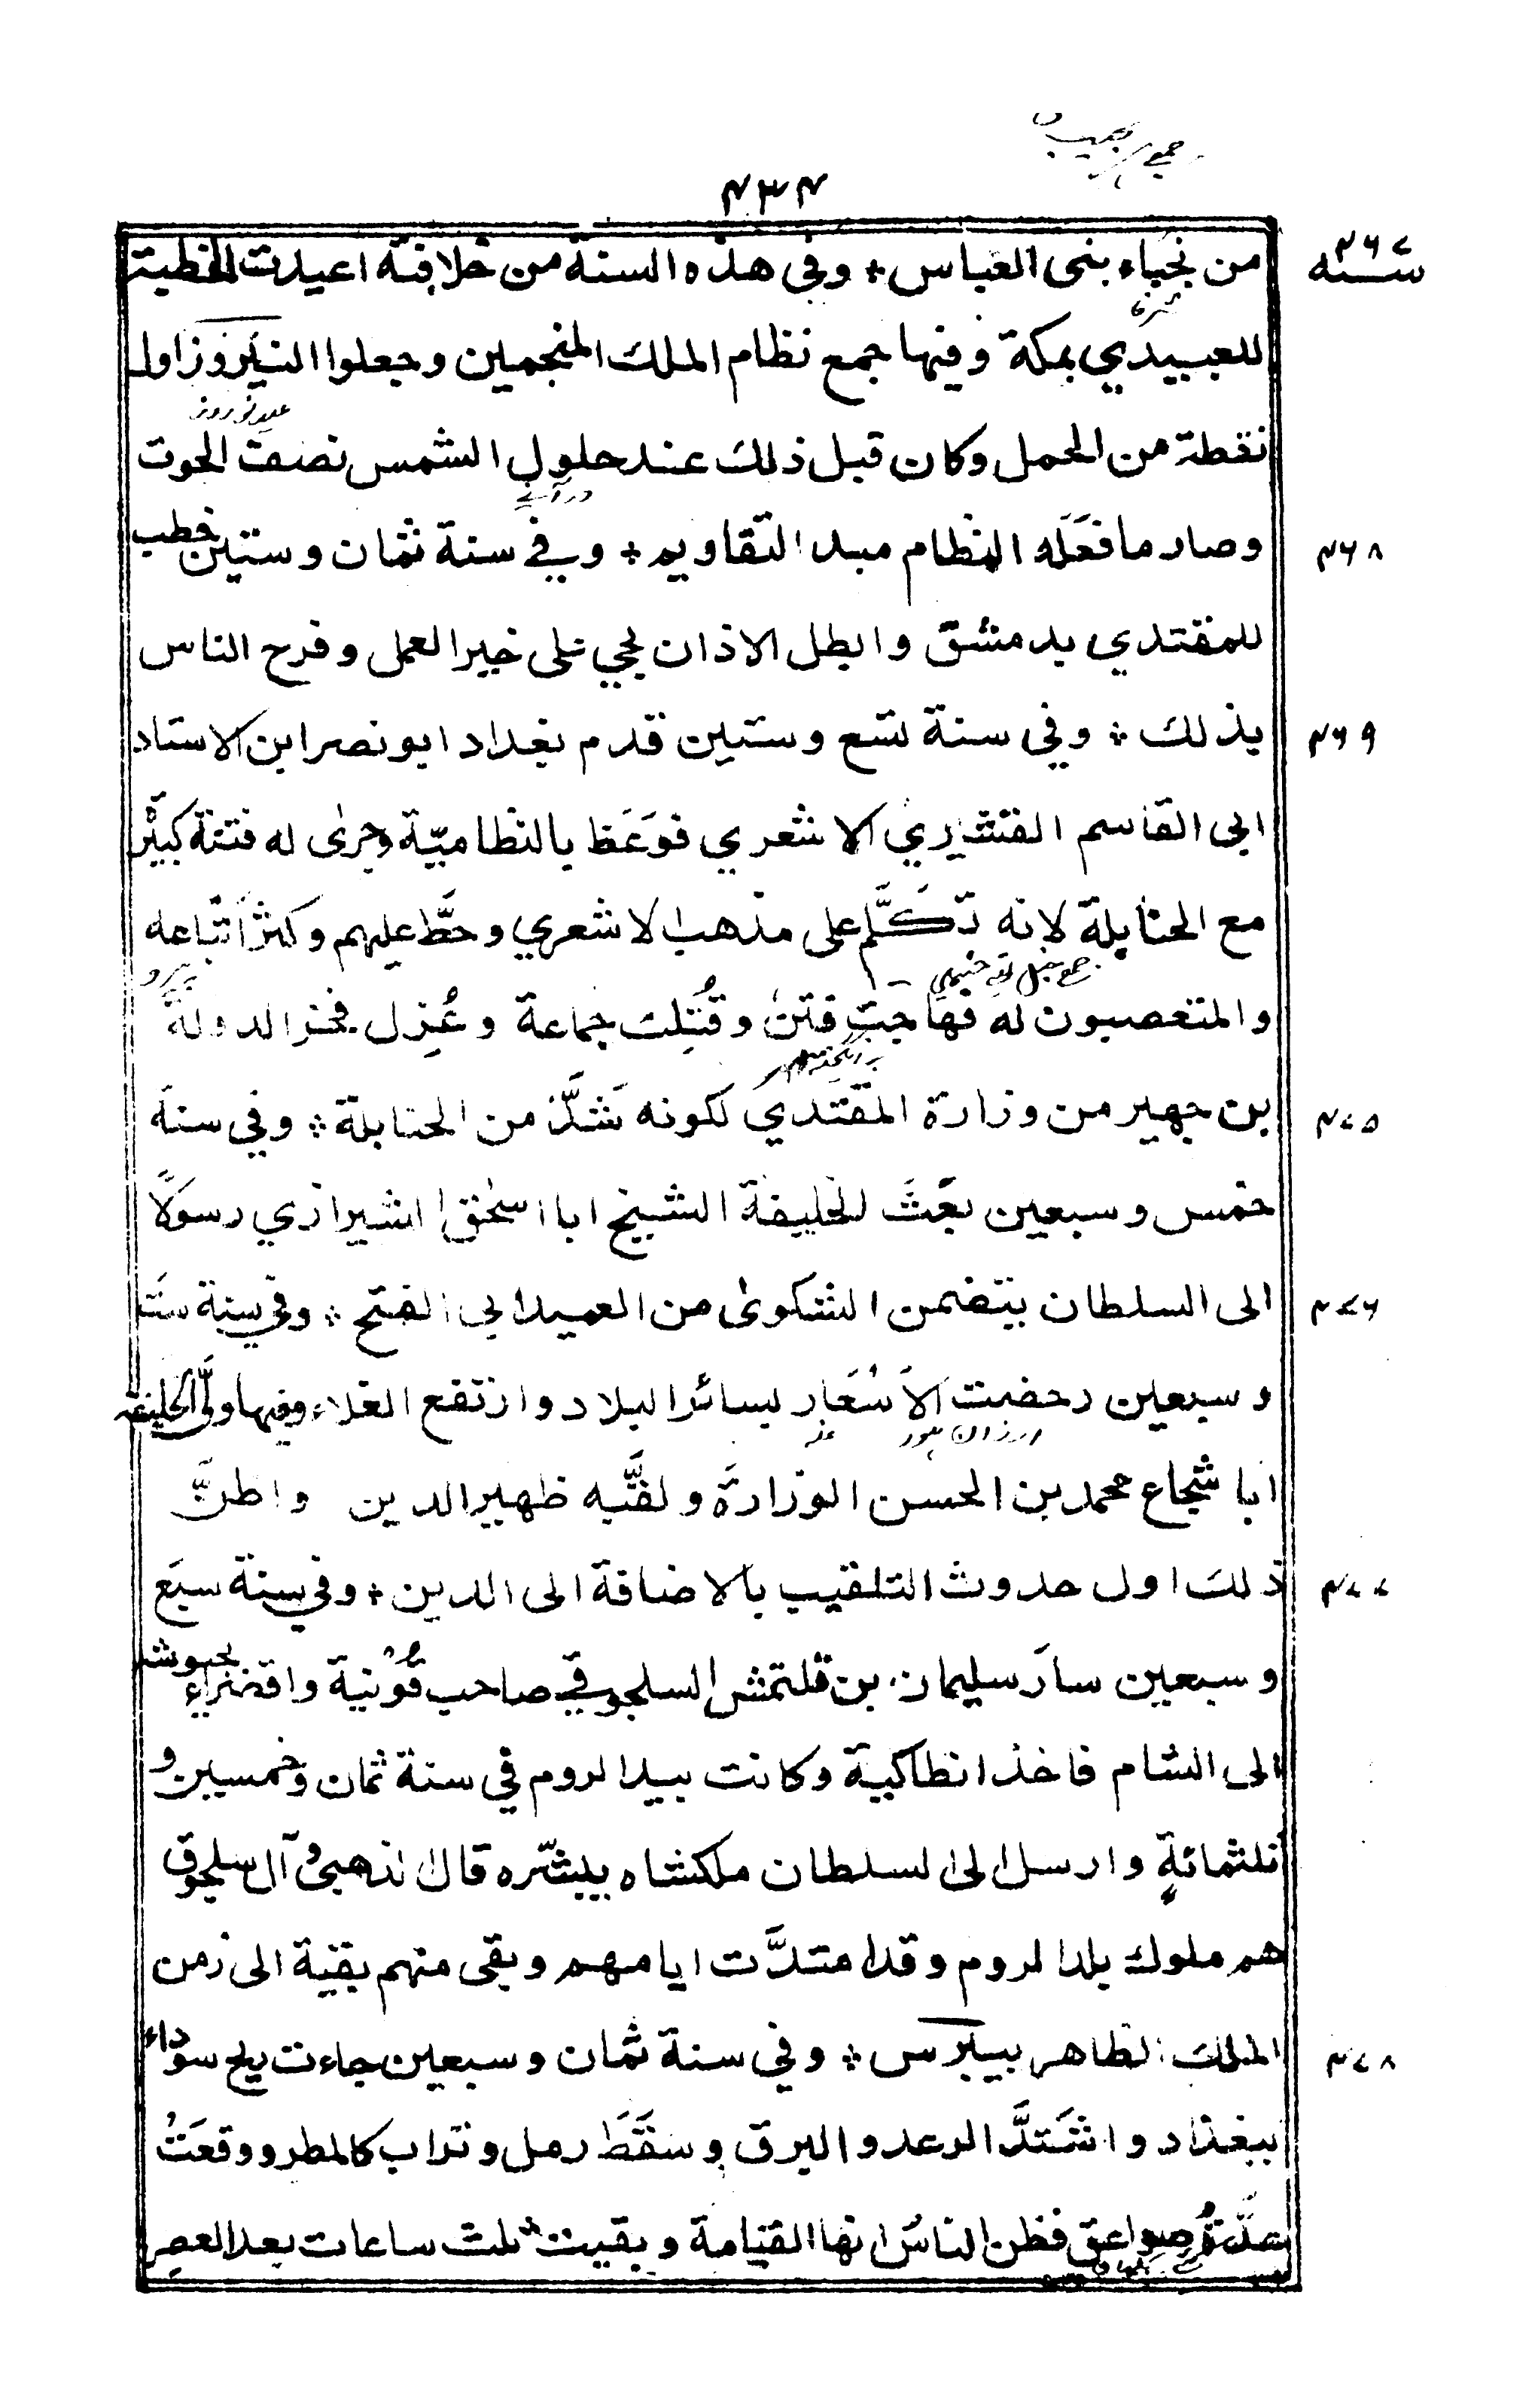 ۴۳۴
سنه ۴۶۷
من نجباء بنى العباس + وفي هذه السنة من خلافته اعيدت الخطبة
للعبيدي بمكة وفيها جمع نظام الملك المنجمين وجعلوا النيروز اول
عید نوروز
نقطة من الحمل وكان قبل ذلك عند حلول الشمس نصف الحوت
وصار ما فعله النظام مبدا التقاويم + وفي سنة ثمان وستين خطب
۴۶۸
للمقتدي بدمشق وابطل الاذان بحي على خير العمل وفرح الناس
بذلك ÷ وفي سنة تسع وستين قدم بغداد ابو نصر ابن الاستاد
۴۶۹
ابى القاسم القشيري الاشعري فوَعَظ بالنظاميّة وجرى له فتنة كبيرة
مع الحنابلة لانه تكلَّم على مذهب الاشعري وحطَّ عليهم وكثر اتباعه
والمتعصبون له فهاجت فتن وقُتِلت جماعة وعُزِل فخر الدولة
بن جهير من وزارة المقتدي لكونه شذَّ من الحنابلة ÷ وفي سنة
۴۷۵
خمس وسبعين بعَثَ الخليفة الشيخ ابا اسحٰق الشيرازي رسولًا
الى السلطان يتضمن الشكوىٰ من العميد ابي الفتح ÷ وفي سنة ست
۴۷۶
وسبعين رخصت الاَسْعَار بسائر البلاد وارتفع الغلاء وفيها ولَّى الخليفة
ارزان
ابا شجاع محمد بن الحسن الوزارة ولقَّبه ظهير الدين واظنّ
ذلك اول حدوث التلقيب بالاضافة الى الدين + وفي سنة سبع
۴۷۷
وسبعين سار سليمان بن قلتمش السلجوقي صاحب قُونية واقصراء بجيوشه
الى الشام فاخذ انطاكية وكانت بيد الروم في سنة ثمان وخمسين و
ثلثمائةٍ وارسل الى السلطان ملكشاه يبشّره قال الذهبيُّ وآل سلجوق
هم ملوك بلد الروم وقد امتدَّت ايامهم وبقى منهم بقية الى زمن
الملك الظاهر بيبرس ÷ وفي سنة ثمان وسبعين جاءت ريح سوداء
۴۷۸
ببغداد واشتدَّ الرعد والبرق وسقَطَ رمل وتراب كالمطر ووقعَتْ
عدَّةُ صواعق فظن الناس انها القيامة وبقيت ثلث ساعات بعد العصر